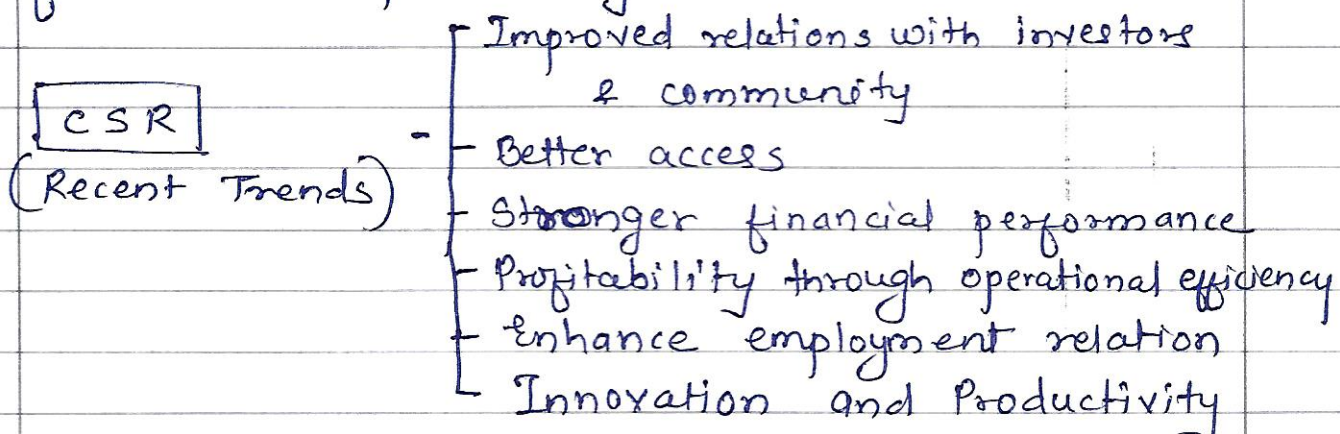 Improved relations with investors
& community
CSR
-
Better access
(Recent Trends)
Stronger financial performance
Profitability through operational efficiency
Enhance employment relation
Innovation and Productivity